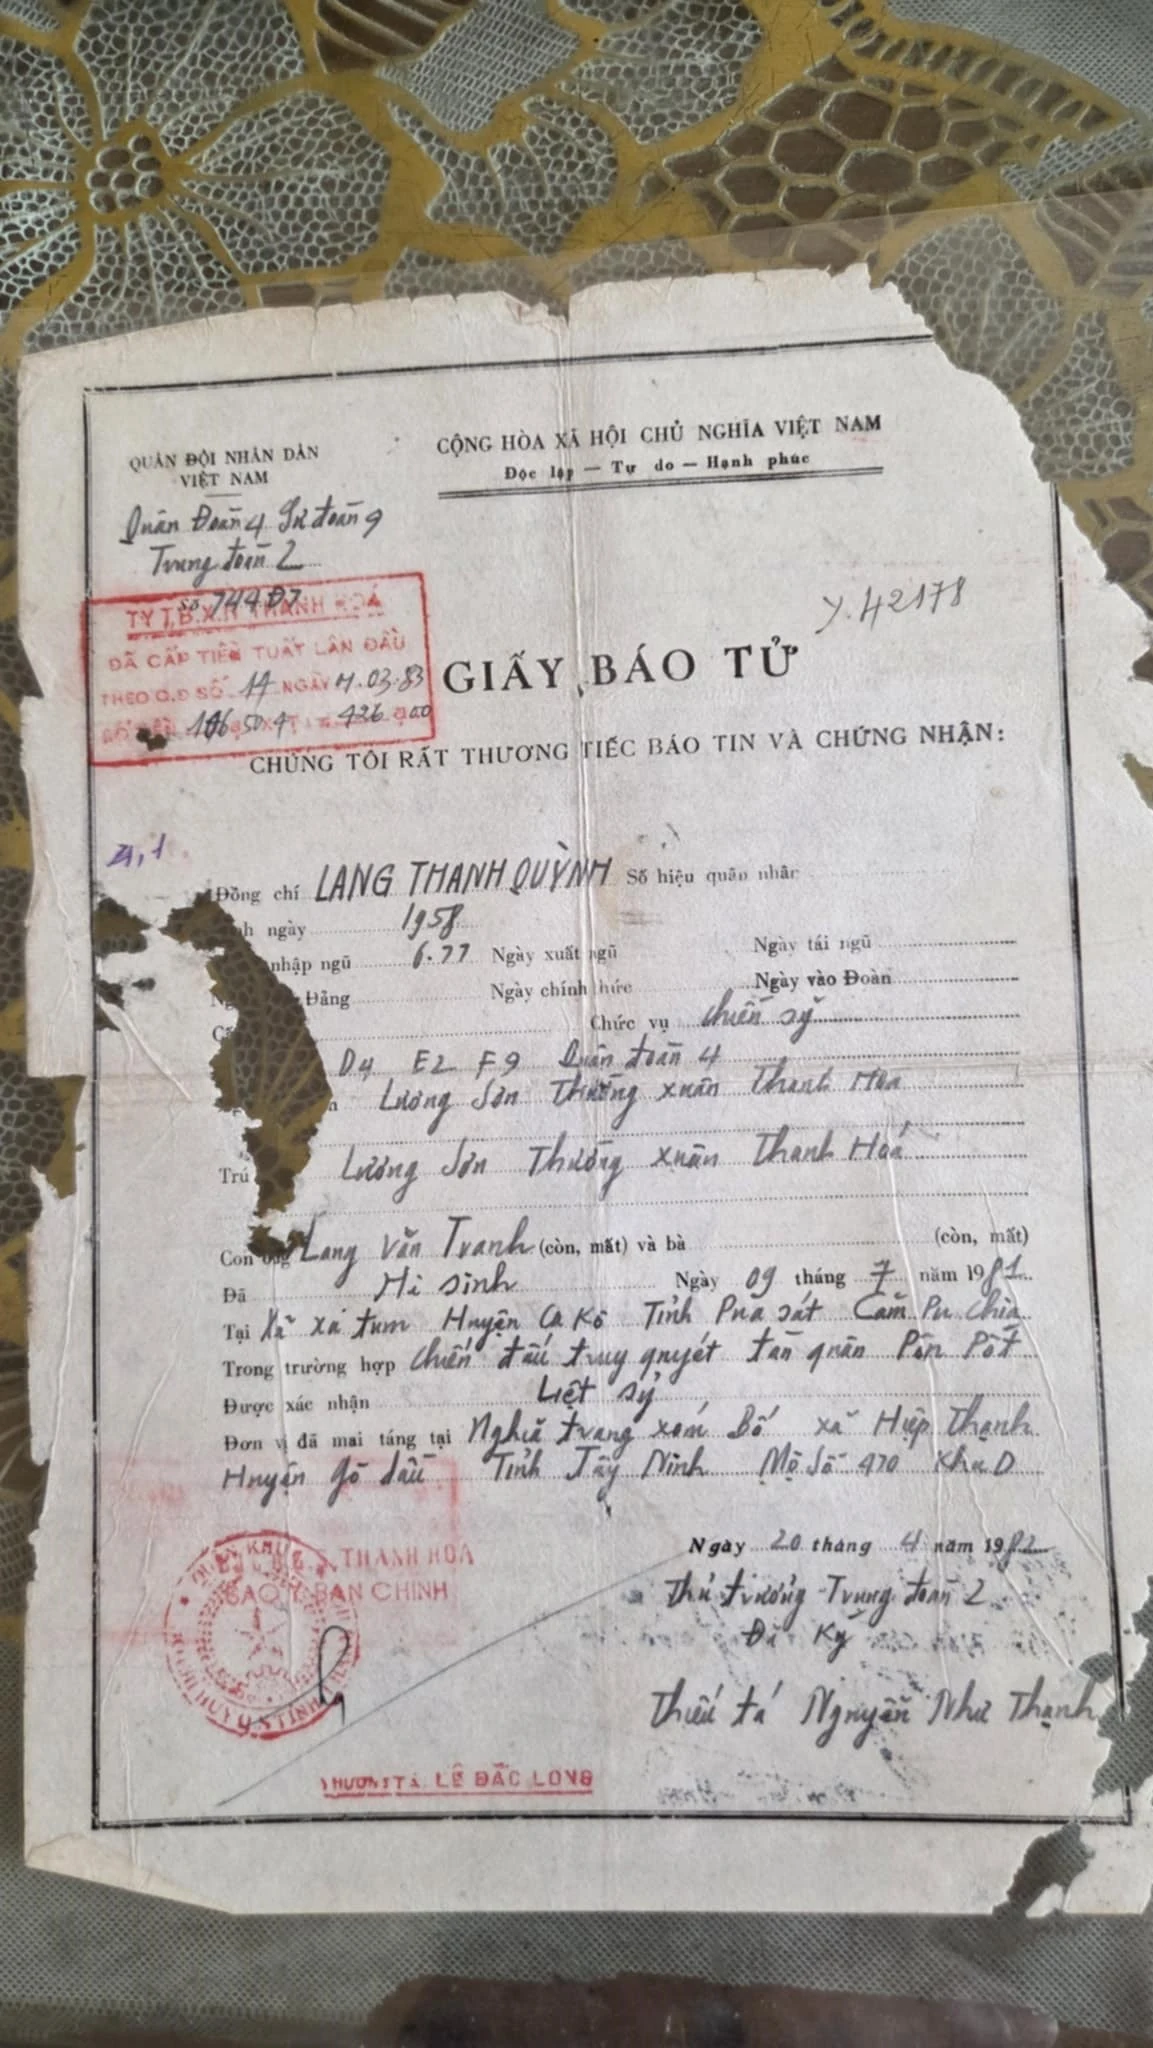 QUÂN ĐỘI NHÂN DÂN
VIỆT NAM
Quân Đoàn 4 Sư đoàn 9
Trung đoàn 2
Số 744 Đ7
CỘNG HÒA XÃ HỘI CHỦ NGHĨA VIỆT NAM
Độc lập — Tự do — Hạnh phúc
TY T.B.X.H THANH HOÁ
ĐÃ CẤP TIỀN TUẤT LẦN ĐẦU
THEO Q.Đ SỐ 14 NGÀY 03.83
Y.42178
GIẤY BÁO TỬ
CHÚNG TÔI RẤT THƯƠNG TIẾC BÁO TIN VÀ CHỨNG NHẬN:
Đồng chí LANG THANH QUỲNH Số hiệu quân nhân
ngày 1958
nhập ngũ 6.77 Ngày xuất ngũ Ngày tái ngũ
Đảng Ngày chính thức Ngày vào Đoàn
Chức vụ chiến sỹ
D4 E2 F9 Quân đoàn 4
Lương Sơn Thường Xuân Thanh Hóa
Trú Lương Sơn Thường Xuân Thanh Hoá
Con ông Lang Văn Tranh (còn, mất) và bà (còn, mất)
Đã Hi sinh Ngày 09 tháng 7 năm 1981
Tại Xã xá tum Huyện Ca Kô Tỉnh Pua sát Căm Pu Chia
Trong trường hợp chiến đấu truy quyét tàn quân Pôn Pốt
Được xác nhận Liệt sỹ
Đơn vị đã mai táng tại Nghĩa trang xóm Bố xã Hiệp Thạnh
Huyện Gò dầu Tỉnh Tây Ninh Mộ Số 470 Khu D
Ngày 20 tháng 4 năm 1982
Thủ trưởng Trung đoàn 2
Đã Ký
Thiếu tá Nguyễn Như Thạnh
THANH HOÁ
SAO Y BẢN CHÍNH
THƯỢNG TÁ LÊ ĐẮC LONG